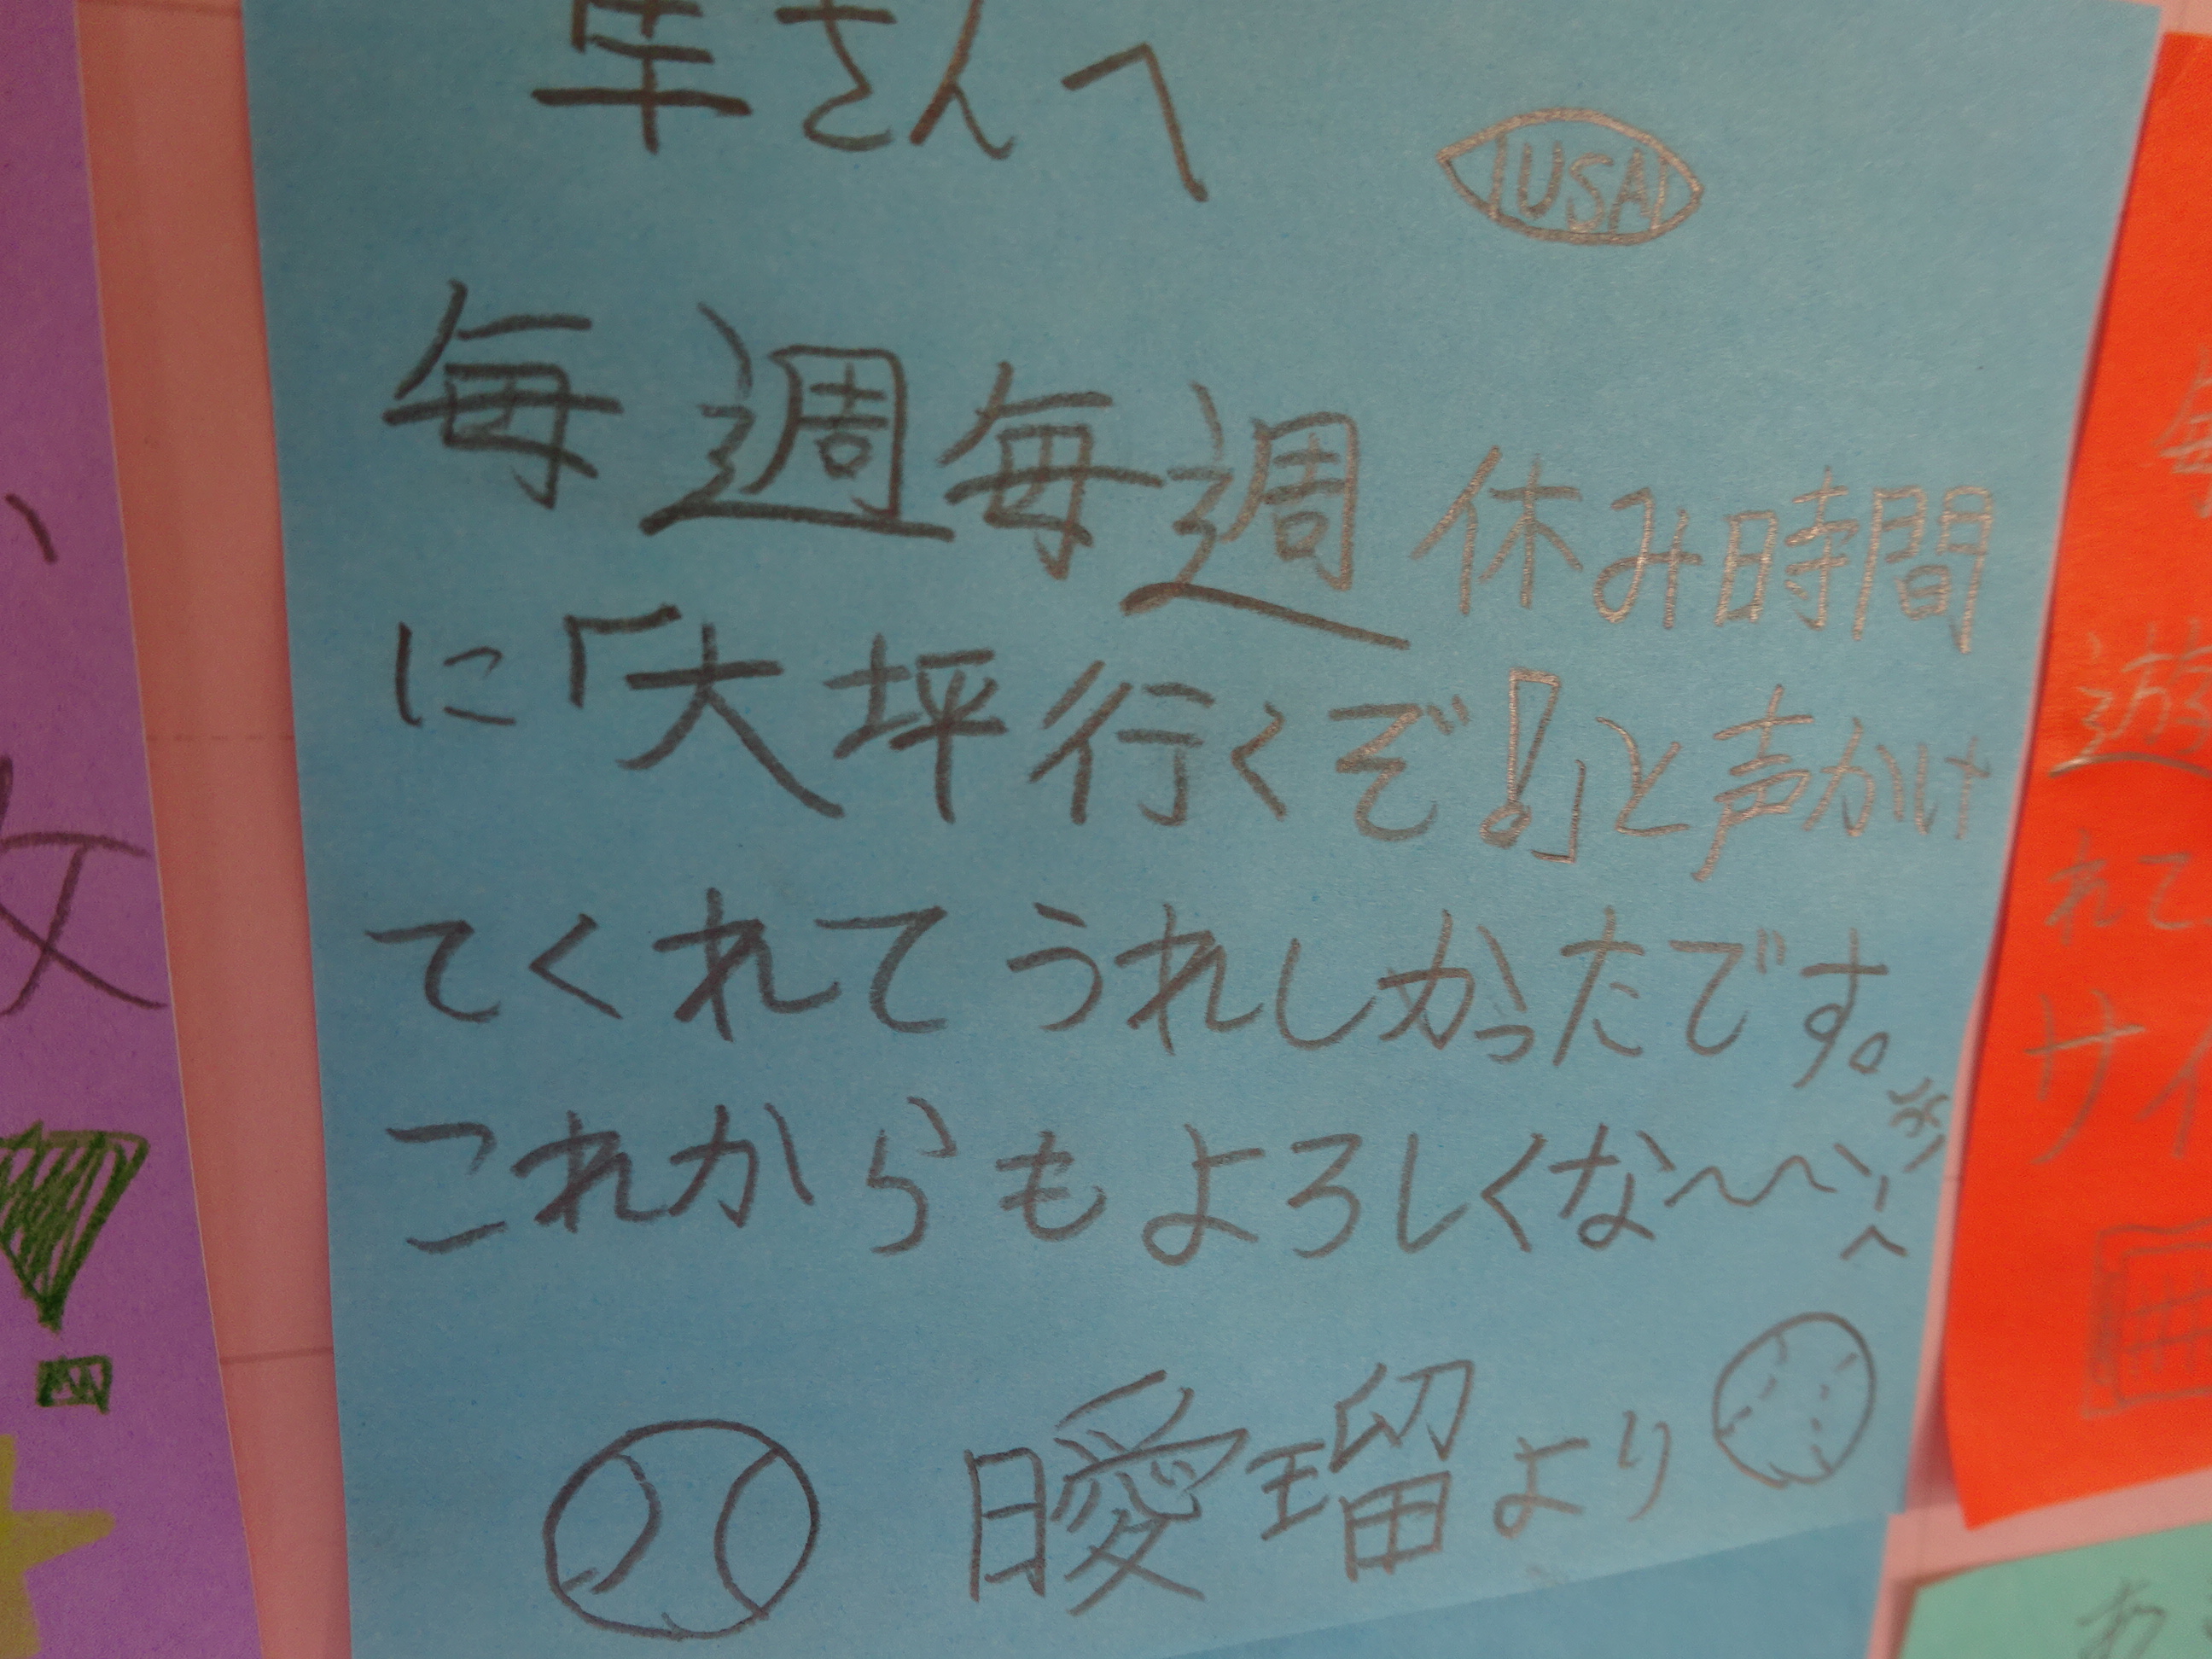 さんへ
USA
毎週毎週休み時間
に「大坪行くぞ!」と声かけ
てくれてうれしかったです。
これからもよろしくな〜〜〜
曖瑠より
遊
れて
サイ